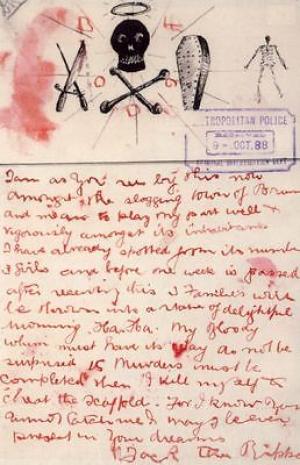 METROPOLITAN POLICE
RECEIVED
9 - OCT. 88
CRIMINAL INVESTIGATION DEPT
I am as you see by this now
amongst the slogging town of Brum
and mean to play my part well &
vigorously amongst its inhabitants
I have already spotted from its number
3 Girls and before one week is passed
after receiving this 3 Families will
be thrown into a state of delightful
mourning. Ha. Ha. My bloody
whim must have its way do not be
surprised 15 Murders must be
completed then I kill myself to
cheat the scaffold. For I know you
cannot catch me & may I be ever
present in your dreams
Jack the Ripper